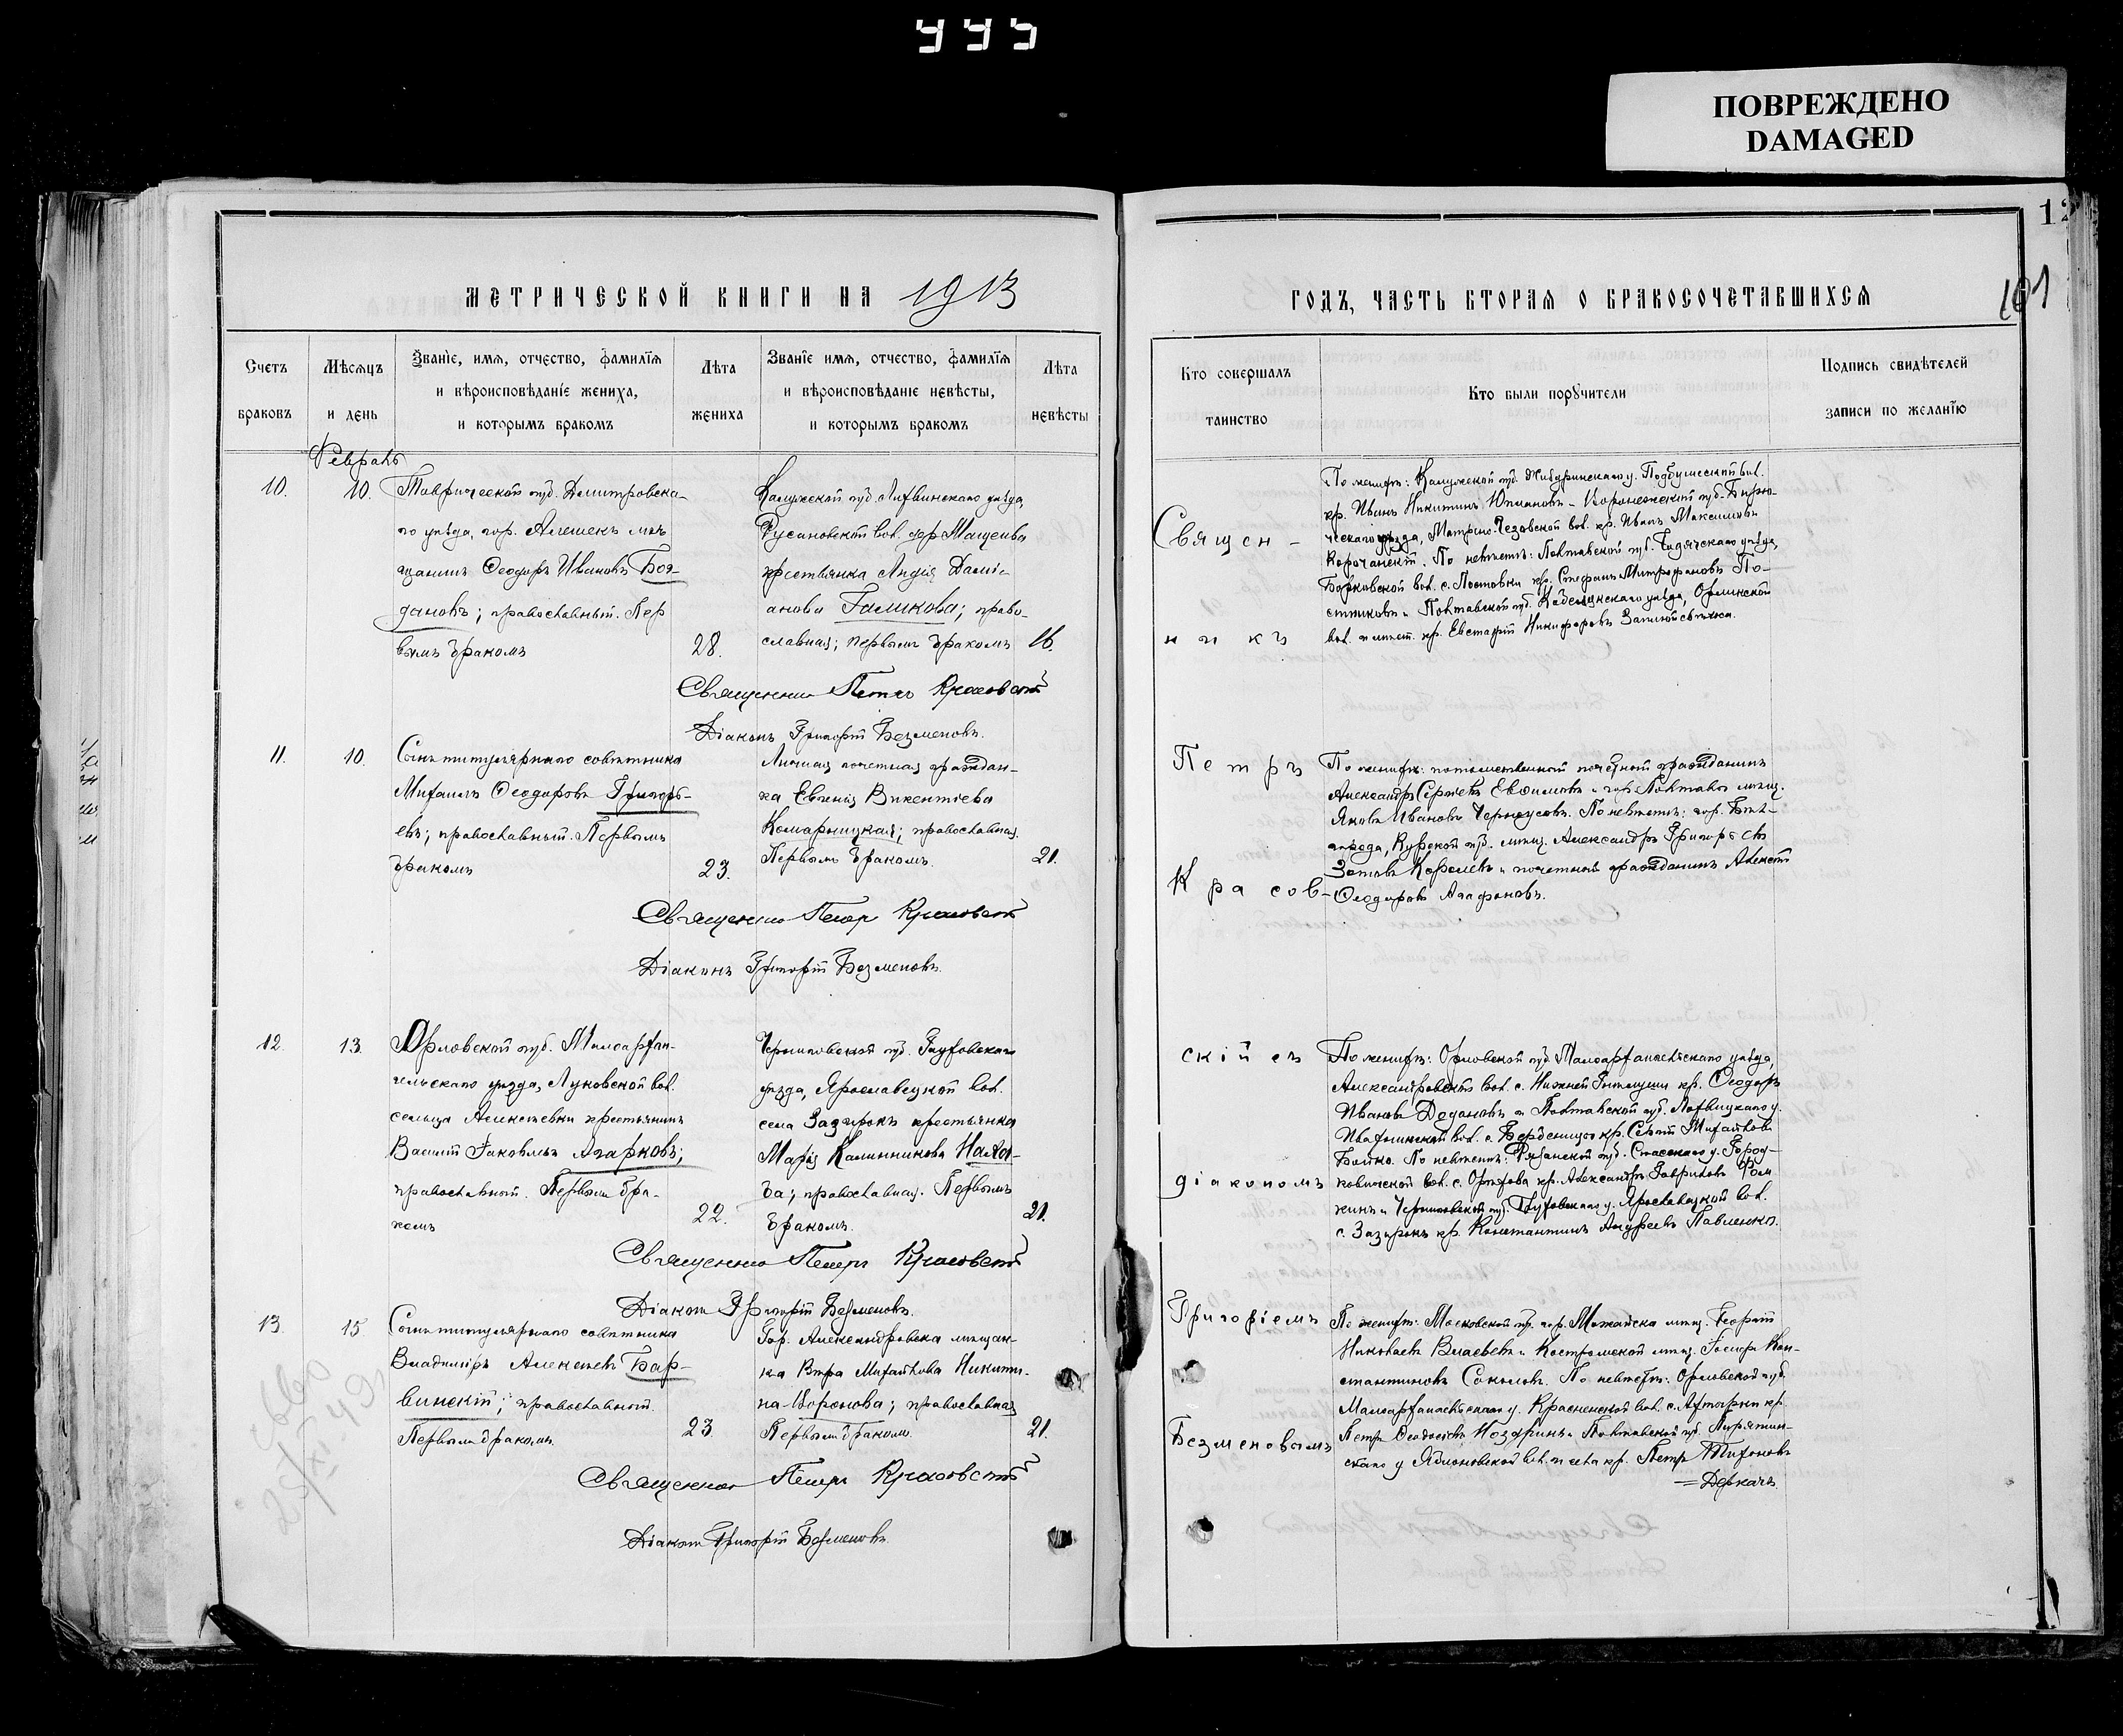 445
ПОВРЕЖДЕНО
DAMAGED
12
101
МЕТРИЧЕСКОЙ КНИГИ НА 1913
ГОДЪ, ЧАСТЬ ВТОРАЯ О БРАКОСОЧЕТАВШИХСЯ
Счетъ браковъ
Мѣсяцъ и день
Званіе, имя, отчество, фамилія
и вѣроисповѣданіе жениха,
и которымъ бракомъ
Лѣта жениха
Званіе имя, отчество, фамилія
и вѣроисповѣданіе невѣсты,
и которымъ бракомъ
Лѣта невѣсты
Кто совершалъ таинство
Кто были поручители
Подпись свидѣтелей
записи по желанію
Февраль
10.
10.
Таврической губ. Димитровска-
го уѣзда, гор. Алешекъ мѣ-
щанинъ Ѳеодоръ Ивановъ Бог-
дановъ; православный. Пер
вымъ бракомъ
28.
Калужской губ. Лихвинскаго уѣзда,
Русановской вол. дер.
крестьянка Лидія Дамі-
анова Галикова; право-
славная; первымъ бракомъ
16.
Священникъ Петръ Красовскій
Діаконъ Григорій Безменовъ.
11.
10.
Сынъ титулярнаго совѣтника
Михаилъ Ѳеодоровъ Григорь-
евъ; православный. Первымъ
бракомъ
23.
Личная почетная граждан-
ка Евгенія Викентіева
Комарницкая; православная.
Первымъ бракомъ.
21.
Священникъ Петръ Красовскій
Діаконъ Григорій Безменовъ.
12.
13.
Орловской губ. Малоархан-
гельскаго уѣзда, Луковской вол.
сельца Алексѣевки крестьянинъ
Василій Іаковлевъ Агарковъ;
православный. Первымъ бра-
комъ
22.
Черниговской губ. Глуховскаго
уѣзда, Ярославецкой вол.
села Зазирокъ крестьянка
Марія Калинникова
ва; православная. Первымъ
бракомъ.
21.
Священникъ Петръ Красовскій
Діаконъ Григорій Безменовъ.
13.
15.
Сынъ титулярнаго совѣтника
Владиміръ Алексѣевъ Бар-
винскій; православный.
Первымъ бракомъ.
23.
Гор. Александровска мѣщан-
ка Вѣра Михайлова Никити-
на-Воронова; православная
Первымъ бракомъ.
21.
Священникъ Петръ Красовскій
Діаконъ Григорій Безменовъ.
Священ-
никъ
Петръ
Красов-
скій съ
діакономъ
Григоріемъ
Безменовымъ
По женихѣ: Калужской губ. Жиздринскаго у. вол.
кр. Иванъ Никитинъ и Воронежской губ. Бирю-
ческаго уѣзда, вол. кр. Иванъ Максимовъ
Корочанскій. По невѣстѣ: Полтавской губ. Гадячскаго уѣзда,
Борковской вол. с. кр. Стефанъ Митрофановъ По-
и Полтавской губ. Кобелякскаго уѣзда,
вол. и мѣст. кр. Евстафій Никифоровъ
По женихѣ: потомственный почетный гражданинъ
Александръ Сергѣевъ Евѳимовъ и гор. Полтавы мѣщ.
Яковъ Ивановъ Черноусовъ. По невѣстѣ: гор. Бѣл-
города, Курской губ. мѣщ. Александръ Григорьевъ
Зотовъ Королевъ и почетный гражданинъ Алексѣй
Ѳеодоровъ Агафоновъ.
По женихѣ: Орловской губ. Малоархангельскаго уѣзда,
Александровской вол. с. Нижней кр. Ѳеодоръ
Ивановъ и Полтавской губ. Лохвицкаго у.
вол. с. кр. Сергій Михайловъ
Бойко. По невѣстѣ: Рязанской губ. Спасскаго у. Город-
вол. с. кр. Александръ Гавриловъ Фом
кинъ и Черниговской губ. Глуховскаго у. Ярославецкой вол.
с. Зазирокъ кр. Константинъ Андреевъ Павленко.
По женихѣ: Московской губ. гор. Можайска мѣщ. Георгій
Николаевъ и Костромской мѣщ. Іосифъ Кон-
стантиновъ Соколовъ. По невѣстѣ: Орловской губ.
Малоархангельскаго у. Красненской вол. с. кр.
Петръ Ѳеодосіевъ и Полтавской губ. Пирятин-
скаго у. Яблоновской вол. и села кр. Петръ Тихоновъ
Деркачъ.